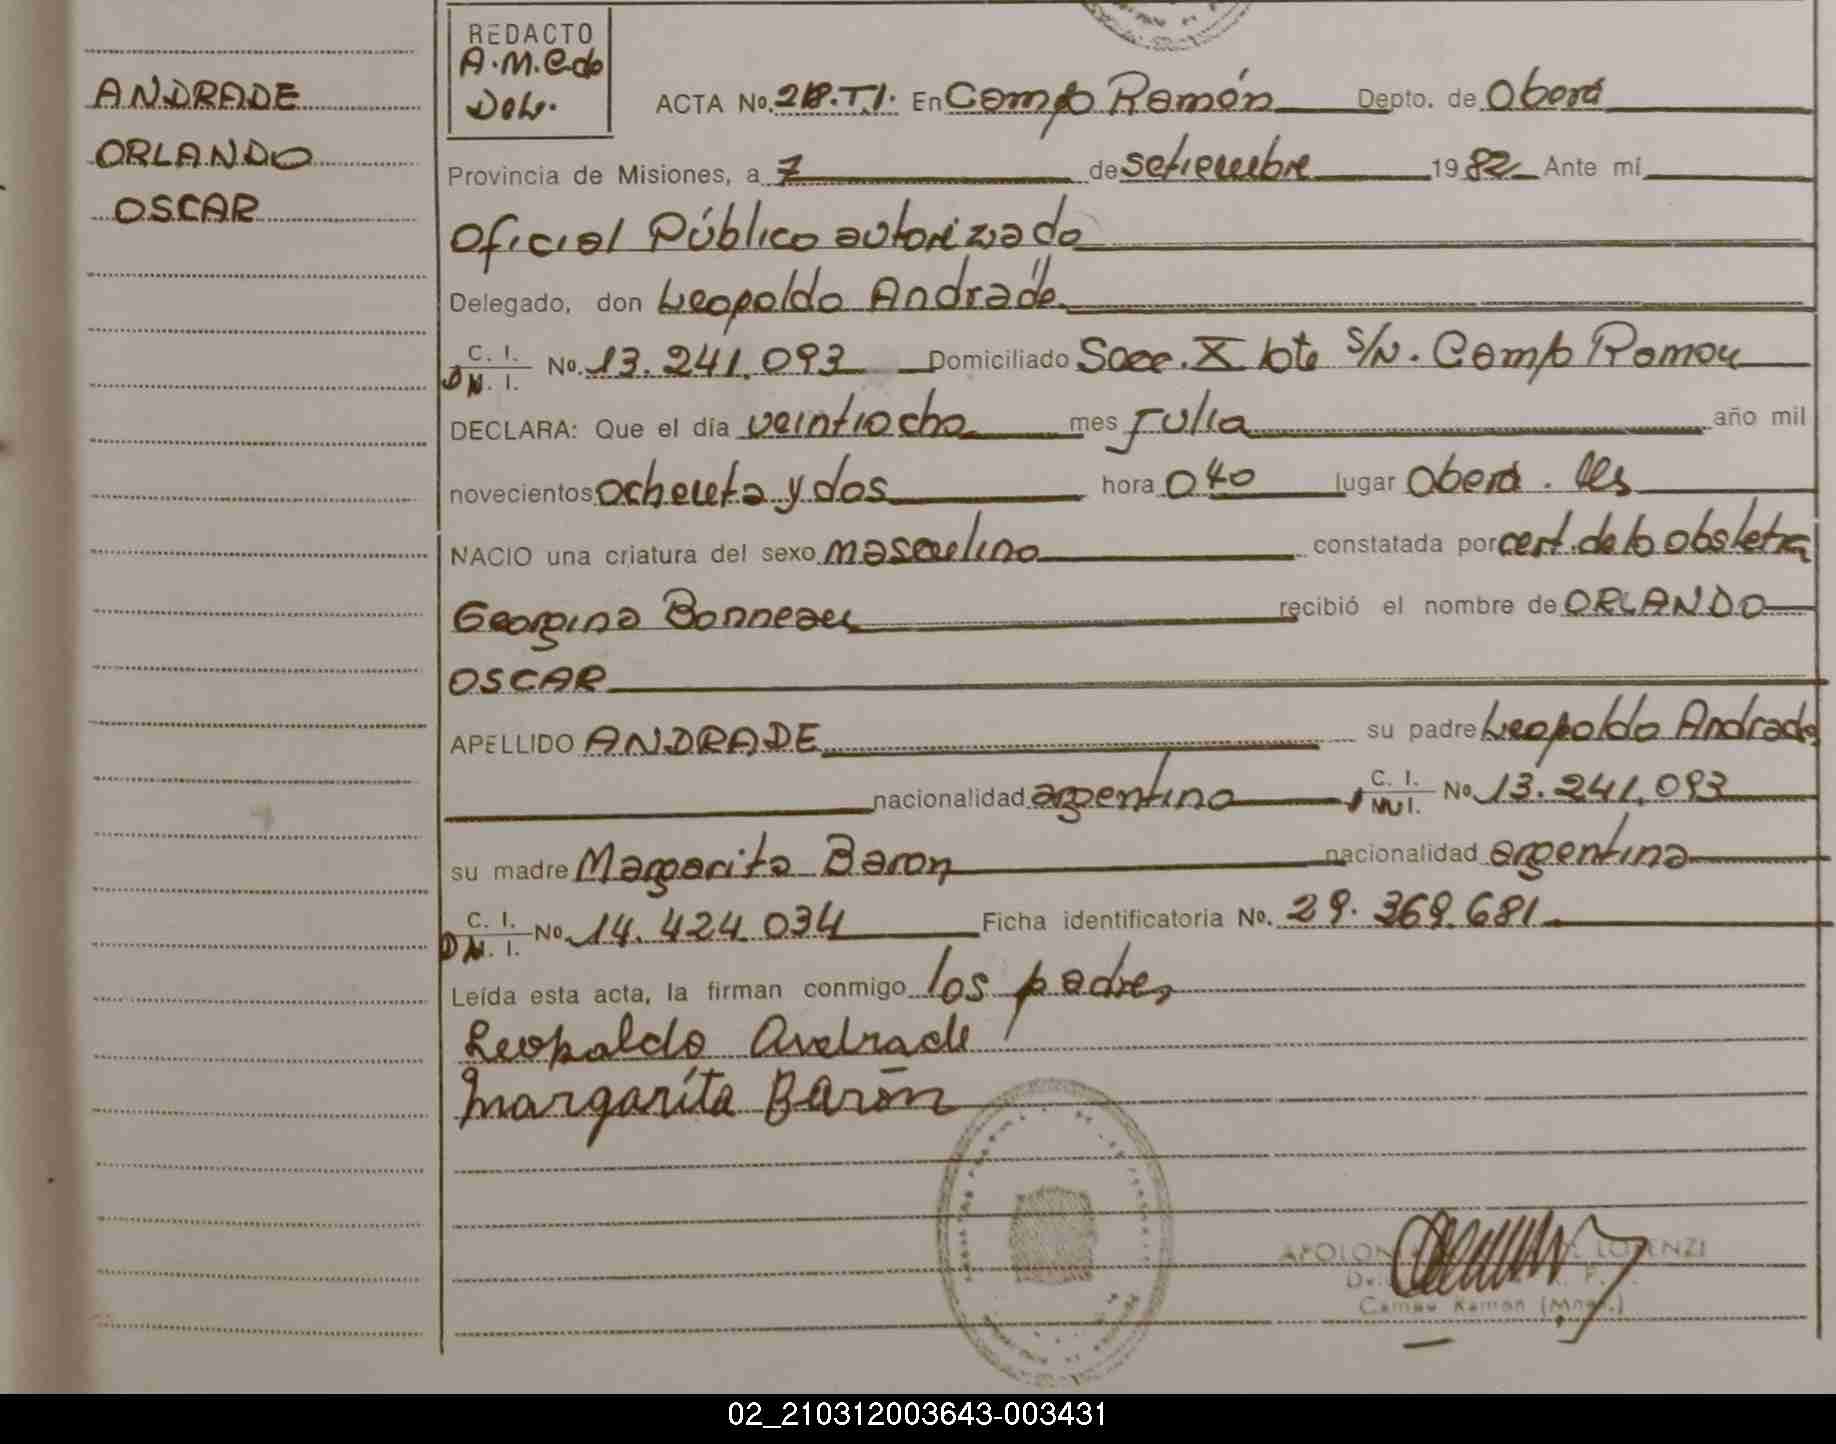 ANDRADE
ORLANDO
OSCAR
REDACTO
A.M.C.do
Del.
ACTA No. 218.T.1. En Campo Ramón Depto. de Oberá
Provincia de Misiones, a 7 de setiembre 1982 Ante mí
Oficial Público autorizado
Delegado, don Leopoldo Andrade
C. I.
D N. I. No. 13.241.093 Domiciliado Secc. X lote S/N. Campo Ramon
DECLARA: Que el día veintiocho mes Julio año mil
novecientos ochenta y dos hora 0 40 lugar Oberá.
NACIO una criatura del sexo masculino constatada por cert. de la obstetra
Georgina Bonneau recibió el nombre de ORLANDO
OSCAR
APELLIDO ANDRADE su padre Leopoldo Andrade
nacionalidad argentino C. I. No. 13.241.093
su madre Margarita Baron nacionalidad argentina
C. I.
D N. I. No. 14.424.034 Ficha identificatoria No. 29.369.681
Leída esta acta, la firman conmigo los padres
Leopoldo Andrade
Margarita Barón
LORENZI
Campo Ramon (Mnes.)
02_210312003643-003431